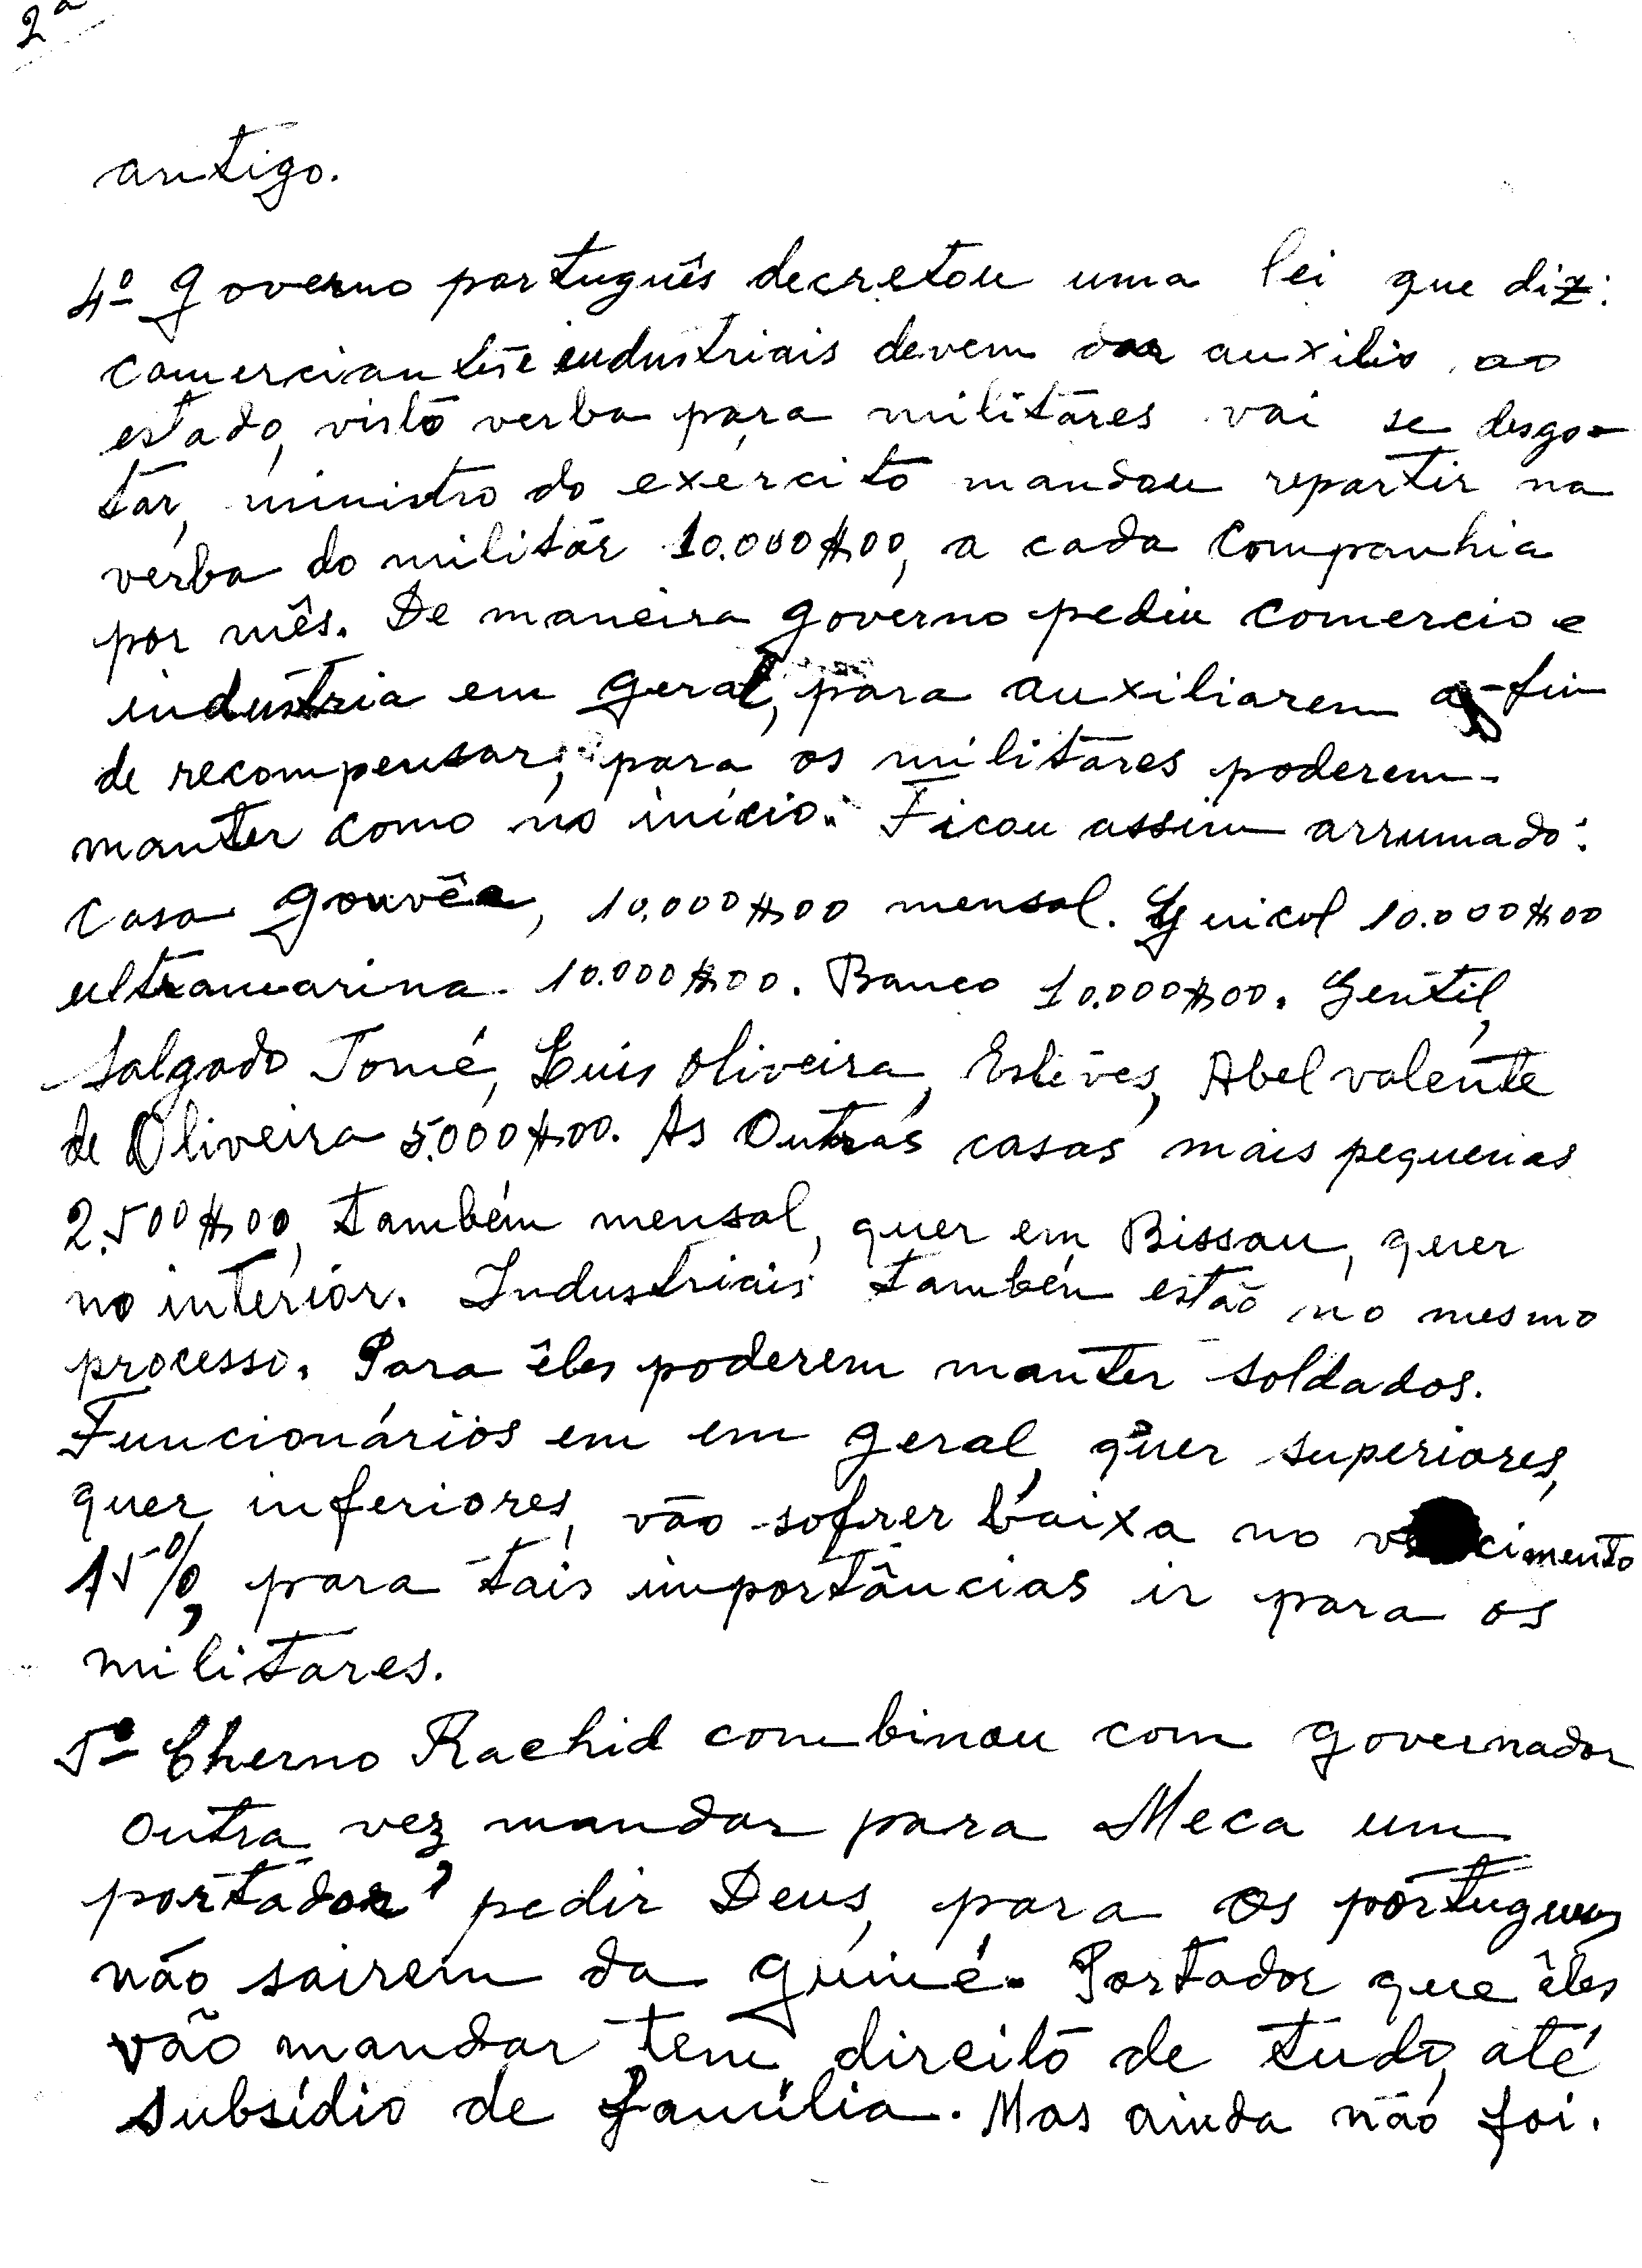 2ª
antigo.
4º Governo português decretou uma lei que diz:
comerciantes e industriais devem dar auxilio ao
estado, visto verba para militares vai se desgo-
tar, ministro do exército mandou repartir na
verba do militar 10.000$00, a cada Companhia
por mês. De maneira governo pediu comercio e
industria em geral, para auxiliarem a-fim
de recompensar, para os militares poderem
manter como no início. Ficou assim arrumado:
Casa Gouvêa, 10.000$00 mensal. Guicol 10.000$00
ultramarina. 10.000$00. Banco 10.000$00. Gentil,
Salgado Tomé, Luís Oliveira, Estêves, Abel valente
de Oliveira 5.000$00. As Outras casas mais pequenas
2.500$00, também mensal, quer em Bissau, quer
no intérior. Industriais também estão no mesmo
processo. Para êles poderem manter soldados.
Funcionários em em geral, quer superiores,
quer inferiores, vão sofrer baixa no
15%, para tais importâncias ir para os
militares.
5º Cherno Rachid combinou com governador
outra vez mandar para Meca um
portador pedir Deus, para os portugueses
não sairem da guiné. Portador que êles
vão mandar tem direito de tudo, até
subsídio de família. Mas ainda não foi.